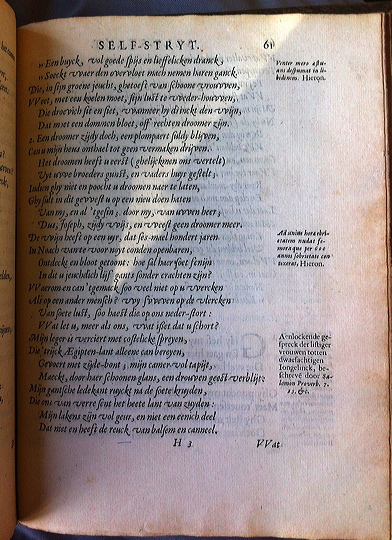 SELF-STRYT. 61
„Een buyck, vol goede spijs en lieffelicken dranck,
„Soeckt waer den overvloet mach nemen haren ganck.
Die, in sijn groene jeucht, ghetoeft van schoone vrouwen,
Weet, met een koelen moet, sijn lust te weder-houwen,
Die droevich sit en siet, wanneer hy drinckt den wijn,
Dat is met den dommen bloet, off recht een droomer zijn.
Een droomer zijdy doch, een plompaert suldy blijven,
Can u mijn heus onthael tot geen vermaken drijven.
Het droomen heeft u eerst (ghelijckmen ons vertelt)
Uyt uwe broeders gunst, en vaders huys gestelt;
Indien ghy niet en poocht u droomen naer te laten,
Ghy sult in dit gewest u op een nieu doen haten
Van my, en al 't gesin; door my, van uwen heer;
Dus, Joseph, zijdy wijs, en weest geen droomer meer.
De wijn heeft op een uyr, dat ses-mael hondert jaren
In Noach ware voor noyt conden openbaren,
Ontdeckt en bloot getoont: hoe sal haer soet fenijn
In die u jeuchdich lijf gants sonder crachten zijn?
Waerom en can 't gemack soo veel niet op u wercken
Als op een ander mensch? wy sweven op de vlercken
Van soete lust, soo haest die op ons neder-stort:
Wat let u, meer als ons, wat isset dat u schort?
Mijn leger is verciert met costelicke spreyen,
Die 'trijck Ægipten-lant alleene can bereyen,
Gevoert met zijde-bont; mijn camer vol tapijt,
Maeckt, door haer schoonen glans, een droeven geest verblijt:
Mijn gantsche ledekant ruyckt na de soete kruyden,
Die ons van verre sent het heete lant van zuyden:
Mijn lakens zijn vol geur, en niet een eenich deel
Dat niet en heeft de reuck van balsem en canneel.
H 3 Wat
Venter mero æstuans
despumat in libidinem.
Hieron.
Ad unius horæ ebrietatem
nudat femora
quæ per 600
annos sobrietate contexerat,
Hieron.
Aenlockende gespreck
der listiger
vrouwen totten
dwaesachtigen
Iongelinck, beschreve
door Salomon
Proverb. 7.